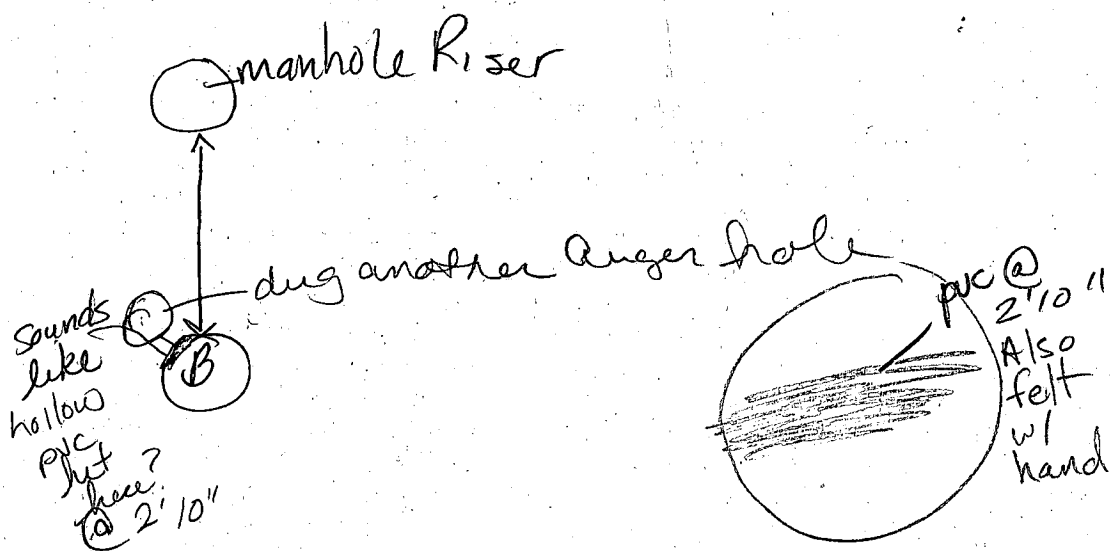 manhole Riser
dug another Auger hole
sounds
like
hollow
pvc
hit
here?
@ 2'10"
B
pvc @
2'10"
Also
felt
w/
hand